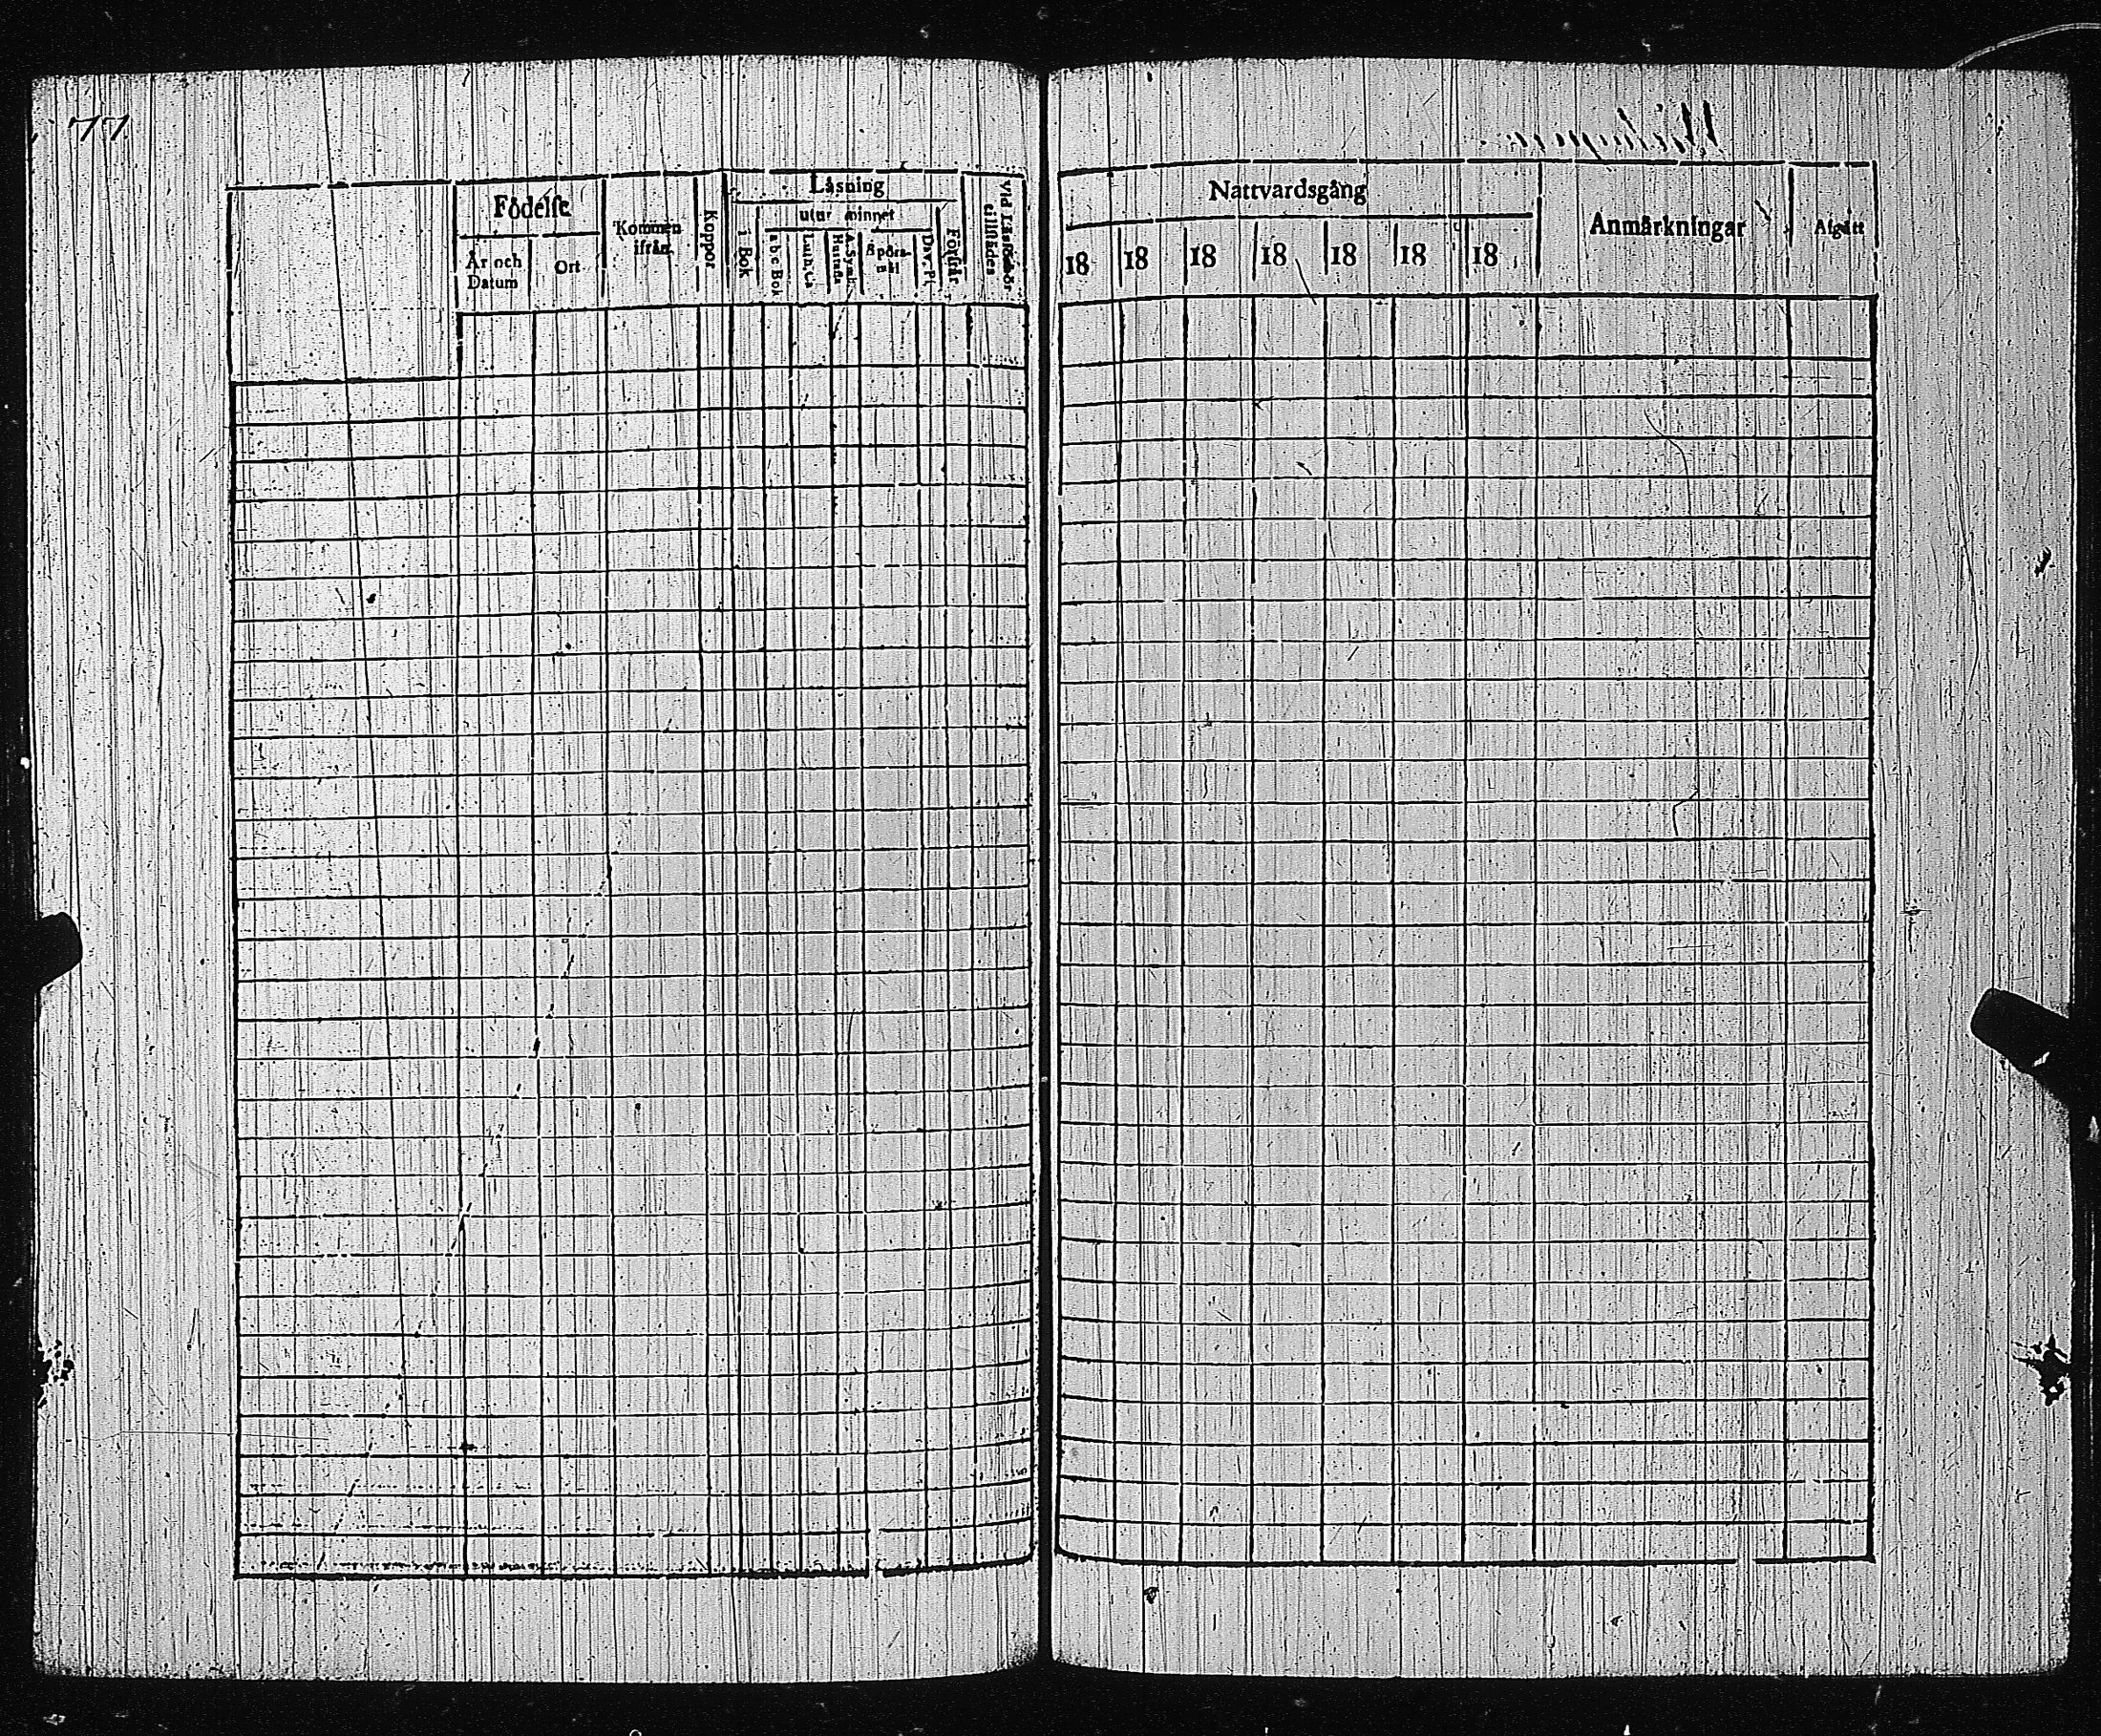 77
Födelse
År och Datum
Ort
Kommen ifrån
Koppor
Läsning
i Bok
utur minnet
a b c Bok
Luth. Ca
Hustafla
A. Symb.
Spörs-
mål
Dav. Ps
Förstår
vid Läsförhör
tillstädes
Nattvardsgång
18 18 18 18 18 18 18
Anmärkningar
Afgått